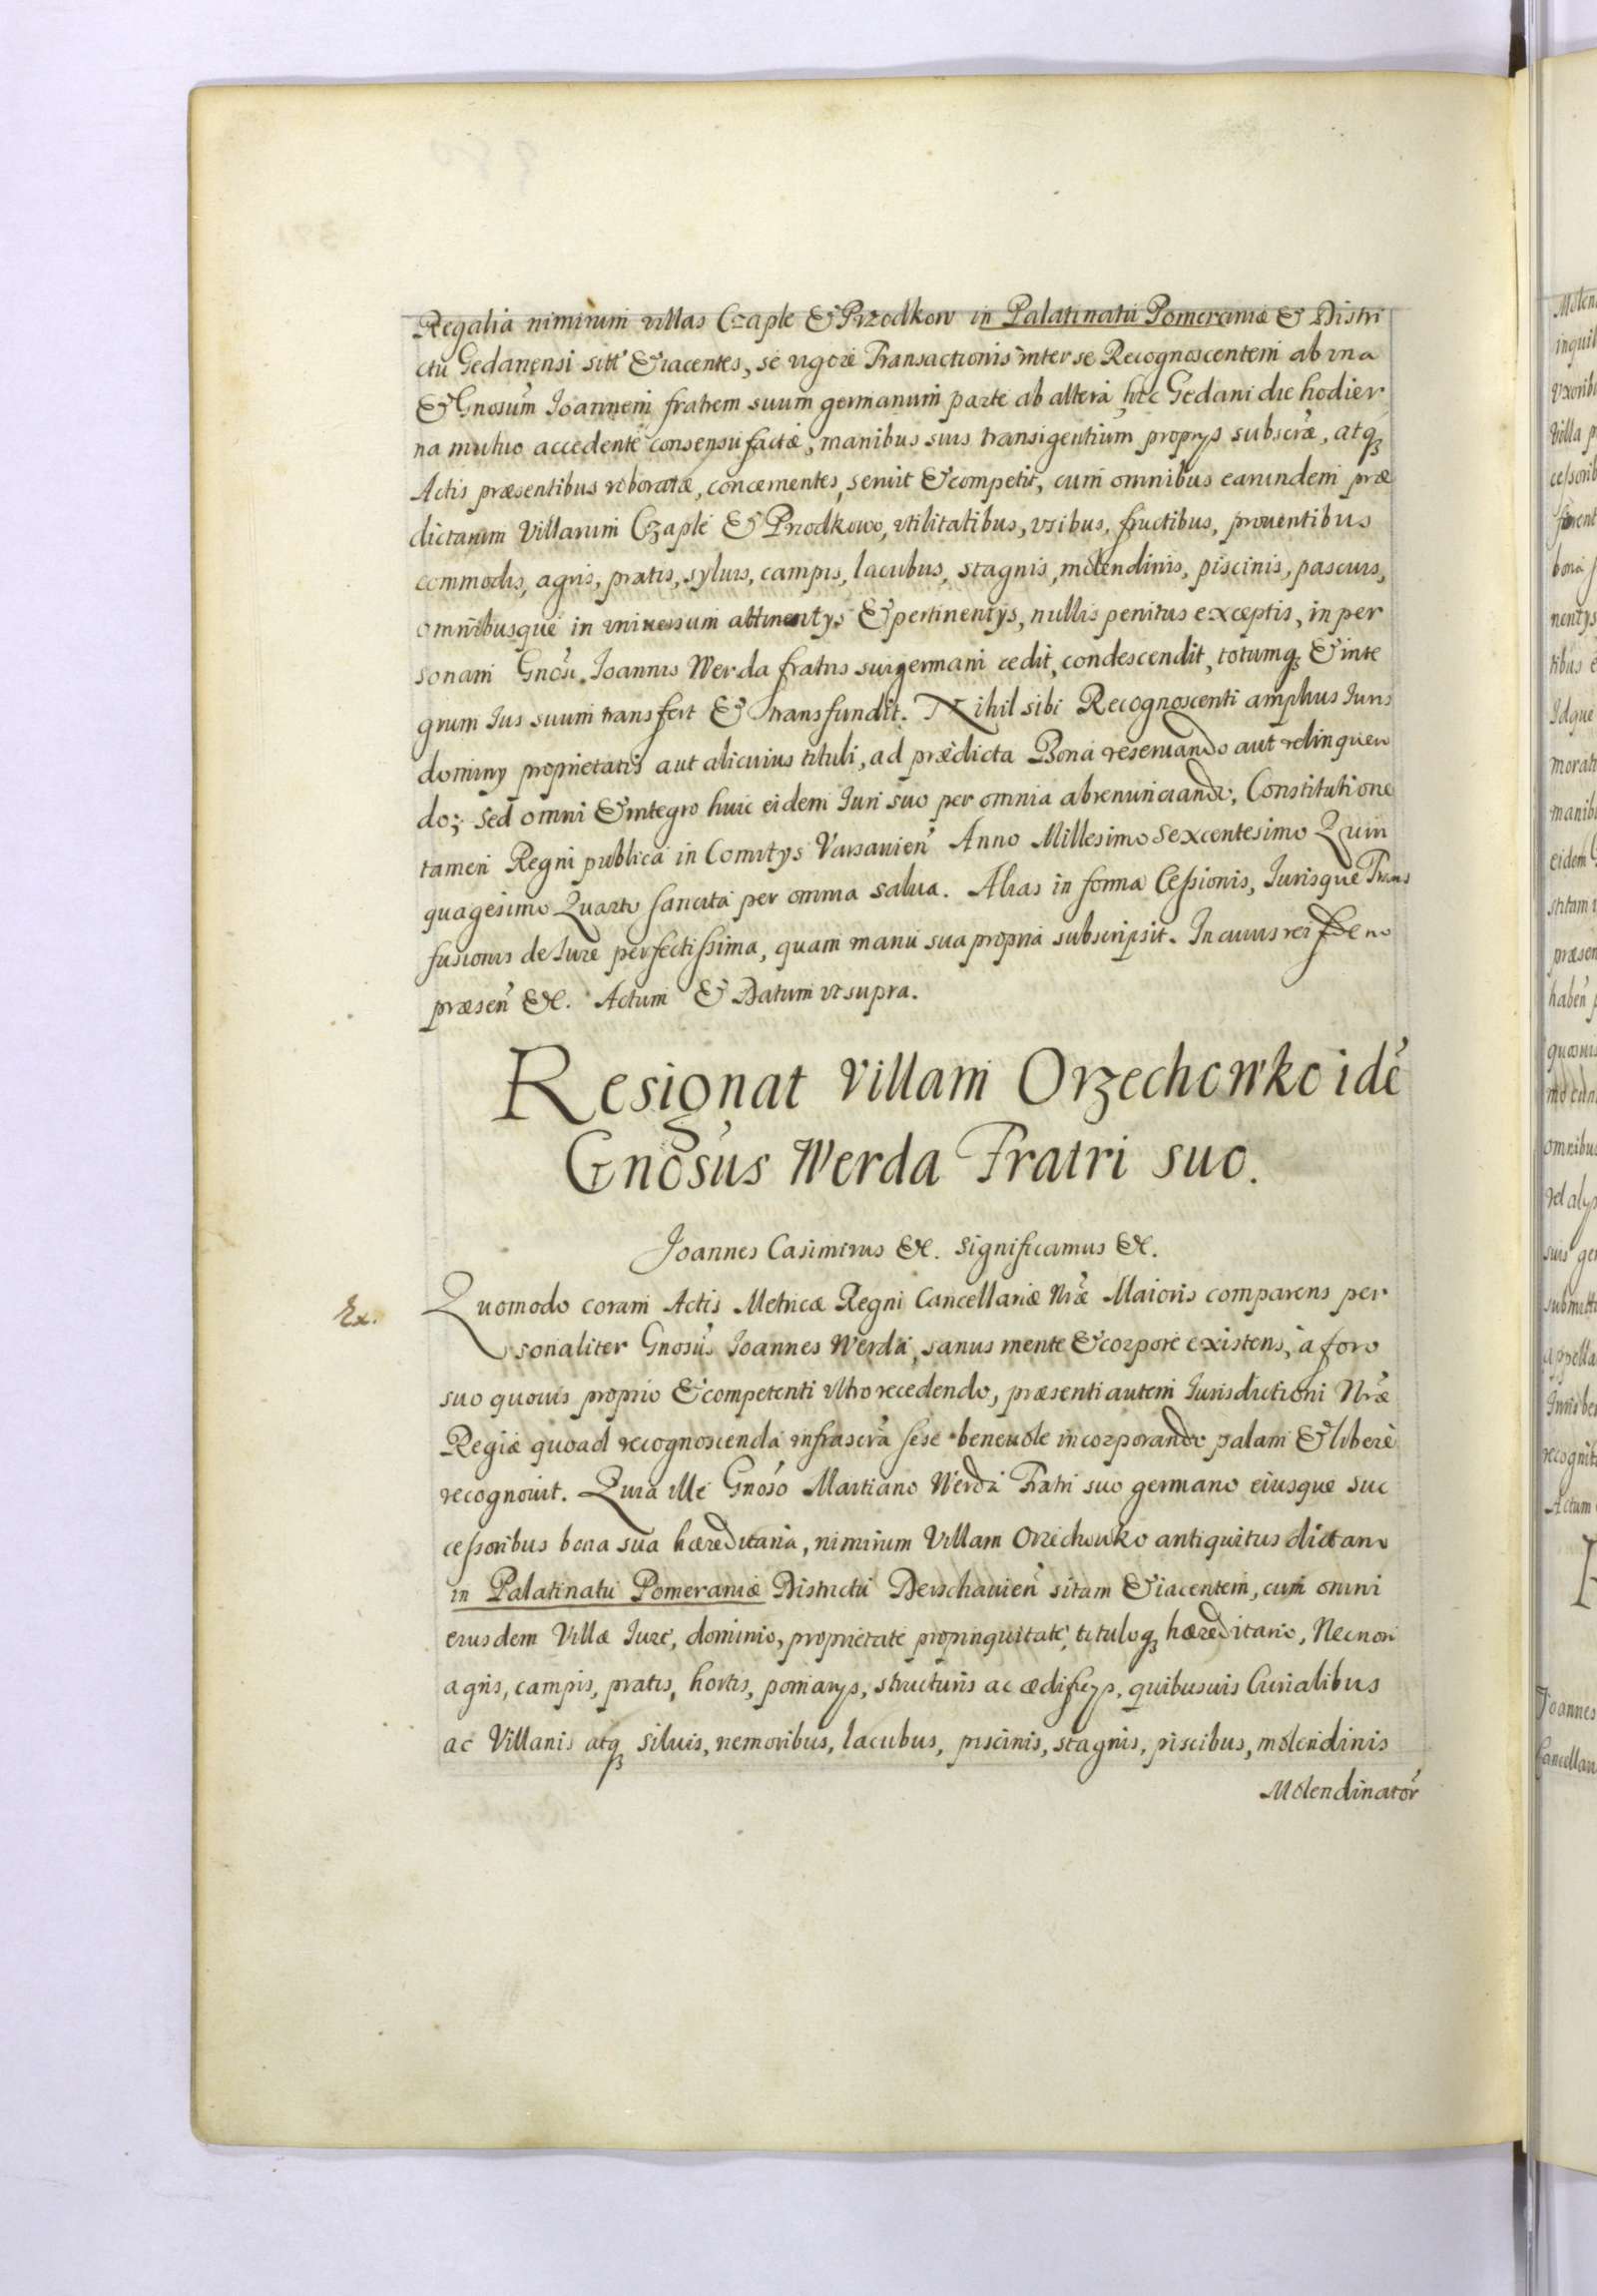 Regalia nimirum villas Czaple & Przodkow in Palatinatu Pomeraniæ & Distri
ctu Gedanensi sitt' & iacentes, se vigore Transactionis inter se Recognoscentem ab vna
& Gnosum Joannem fratrem suum germanum parte ab altera, hic Gedani die hodier
na mutuo accedente consensu factæ, manibus suis transigentium proprys subscræ, atq
Actis præsentibus roboratæ, concernentes, seruit & competit, cum omnibus earundem præ
dictarum Villarum Czaple & Przodkowo, vtilitatibus, vsibus, fructibus, prouentibus
commodis, agris, pratis, syluis, campis, lacubus, stagnis, molendinis, piscinis, pascuis,
omnibusque in vniuersum attinentys & pertinentys, nullis penitus exceptis, in per
sonam Gnosi Joannis Werda fratris sui germani cedit, condescendit, totumq & inte
grum Ius suum transfert & transfundit. Nihil sibi Recognoscenti amplius Iuris
dominy proprietatis aut alicuius tituli, ad prædicta Bona reseruando aut relinquen
do; sed omni & integro huic eidem Iuri suo per omnia abrenunciando, Constitutione
tamen Regni publica in Comitys Varsauien Anno Millesimo Sexcentesimo Quin
quagesimo Quarto sancita per omnia salua. Alias in forma Cessionis, Iurisque Trans
fusionis de Iure perfectissima, quam manu sua propria subscripsit. In cuius rei fidem
præsen &c. Actum & Datum vt supra.
Resignat villam Orzechowko idé
Gnosus Werda Fratri suo.
Joannes Casimirus &c. significamus &c.
Ex.
Quomodo coram Actis Metricæ Regni Cancellariæ Nræ Maioris comparens per
sonaliter Gnosus Joannes Werda, sanus mente & corpore existens, à foro
suo quouis proprio & competenti vltro recedendo, præsenti autem Iurisdictioni Nræ
Regiæ quoad recognoscenda infrascra sese beneuole incorporando palam & liberè
recognouit. Quia ille Gnoso Martiano Werda Fratri suo germano eiusque suc
cessoribus bona sua hæreditaria, nimirum Villam Orzechowko antiquitus dictam
in Palatinatu Pomeraniæ Districtu Derschauien sitam & iacentem, cum omni
eiusdem Villæ Iure, dominio, proprietate propinquitate, tituloq hæreditario, Necnon
agris, campis, pratis, hortis, pomarys, structuris ac ædificys, quibusuis Curialibus
ac Villanis atq siluis, nemoribus, lacubus, piscinis, stagnis, piscibus, molendinis
Molendinator